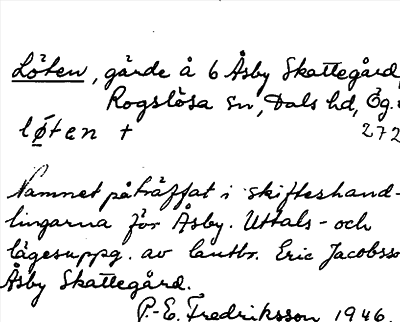 Löten, gärde å 6 Åsby Skattegård,
Rogslösa sn, Dals hd, Ög.
løten + 272
Namnet påträffat i skifteshand-
lingarna för Åsby. Uttals- och
lägesuppg. av lantbr. Eric Jacobsso
Åsby Skattegård.
P.-E. Fredriksson 1946.